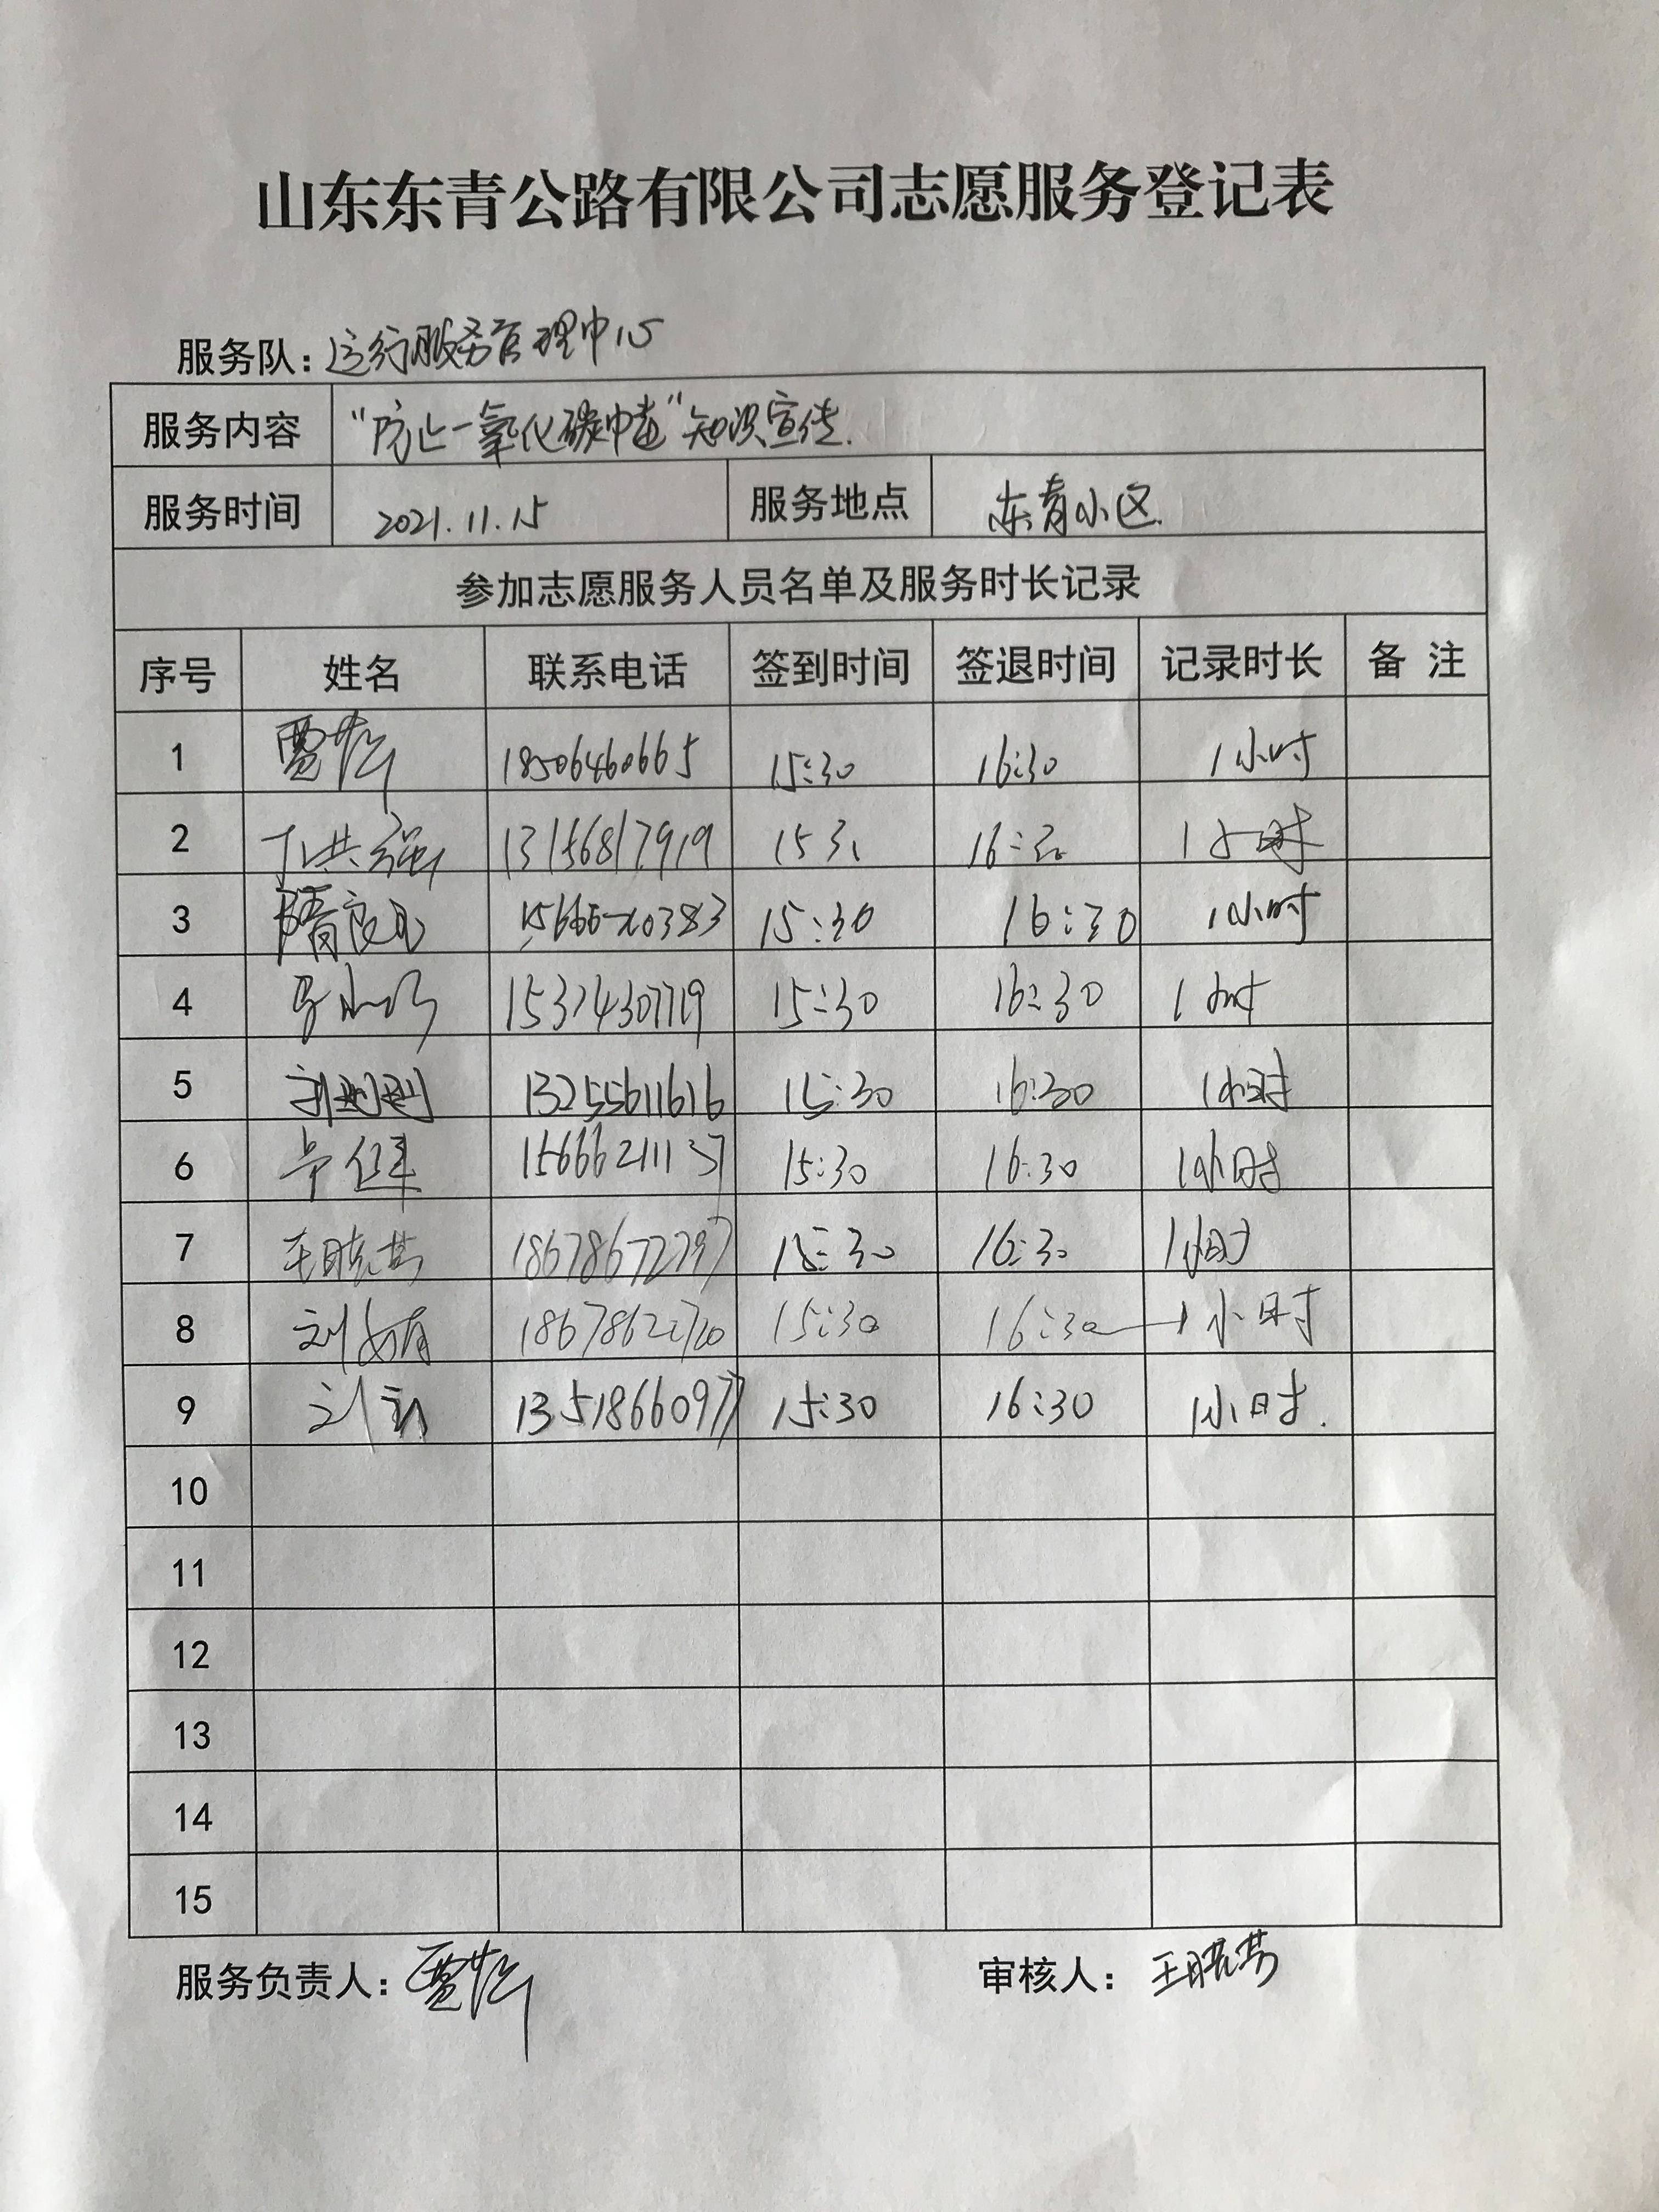 山东东青公路有限公司志愿服务登记表
服务队：运行服务管理中心
服务内容 “防止一氧化碳中毒”知识宣传.
服务时间 2021.11.15 服务地点 东青小区.
参加志愿服务人员名单及服务时长记录
序号 姓名 联系电话 签到时间 签退时间 记录时长 备 注
1 18506460665 15:30 16:30 1小时
2 13156817919 16:30 1小时
3 15:30 16:30 1小时
4 15:30 16:30 1小时
5 13255611616 15:30 16:30 1小时
6 15666211137 15:30 16:30 1小时
7 王晓芸 18678672797 15:30 16:30 1小时
8 15:30 16:30 1小时
9 13518660977 15:30 16:30 1小时.
10
11
12
13
14
15
服务负责人： 审核人：